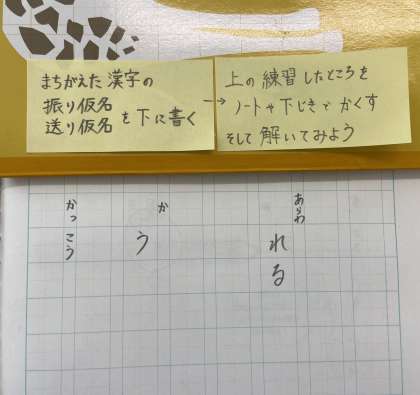 まちがえた漢字の
振り仮名
送り仮名
を下に書く
→
上の練習したところを
ノートや下じきでかくす
そして解いてみよう
あらわ
れる
か
う
かっこう